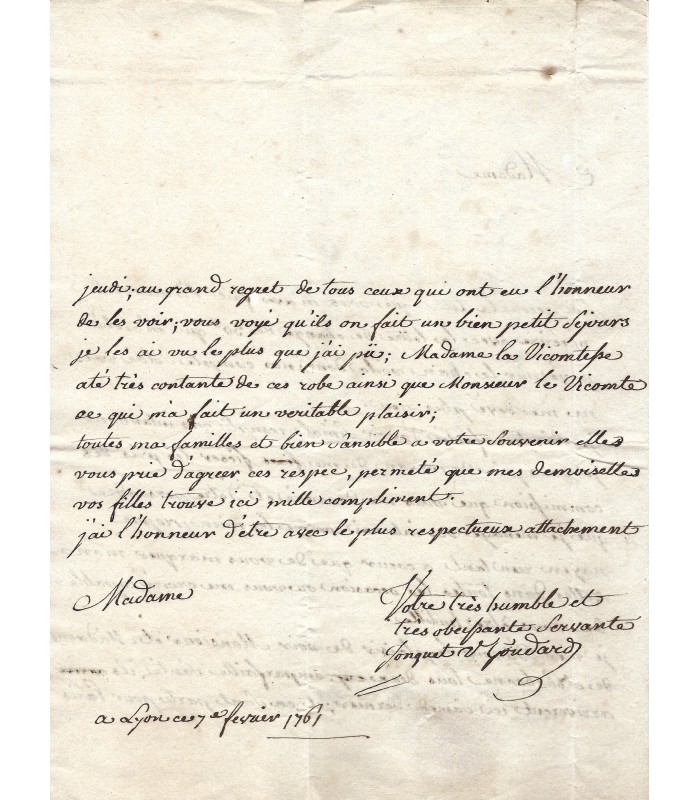 jeudi; au grand regret de tous ceux qui ont eu l'honneur
de les voir; vous voyé qu'ils on fait un bien petit Séjours
je les ai vu le plus que j'ai pü; Madame la Vicomtesse
até très contante de ces robe ainsi que Monsieur le Vicomte
ce qui m'a fait un veritable plaisir;
toutes ma familles et bien Sansible a votre Souvenir elles
vous prie d'agréer ces respec, permeté que mes demoiselles
vos filles trouve ici mille compliment.
j'ai l'honneur d'être avec le plus respectueux attachement
Madame
Votre très humble et
très obeissante Servante
Jonquet Ve Goudard
a Lyon ce 7e fevrier 1761